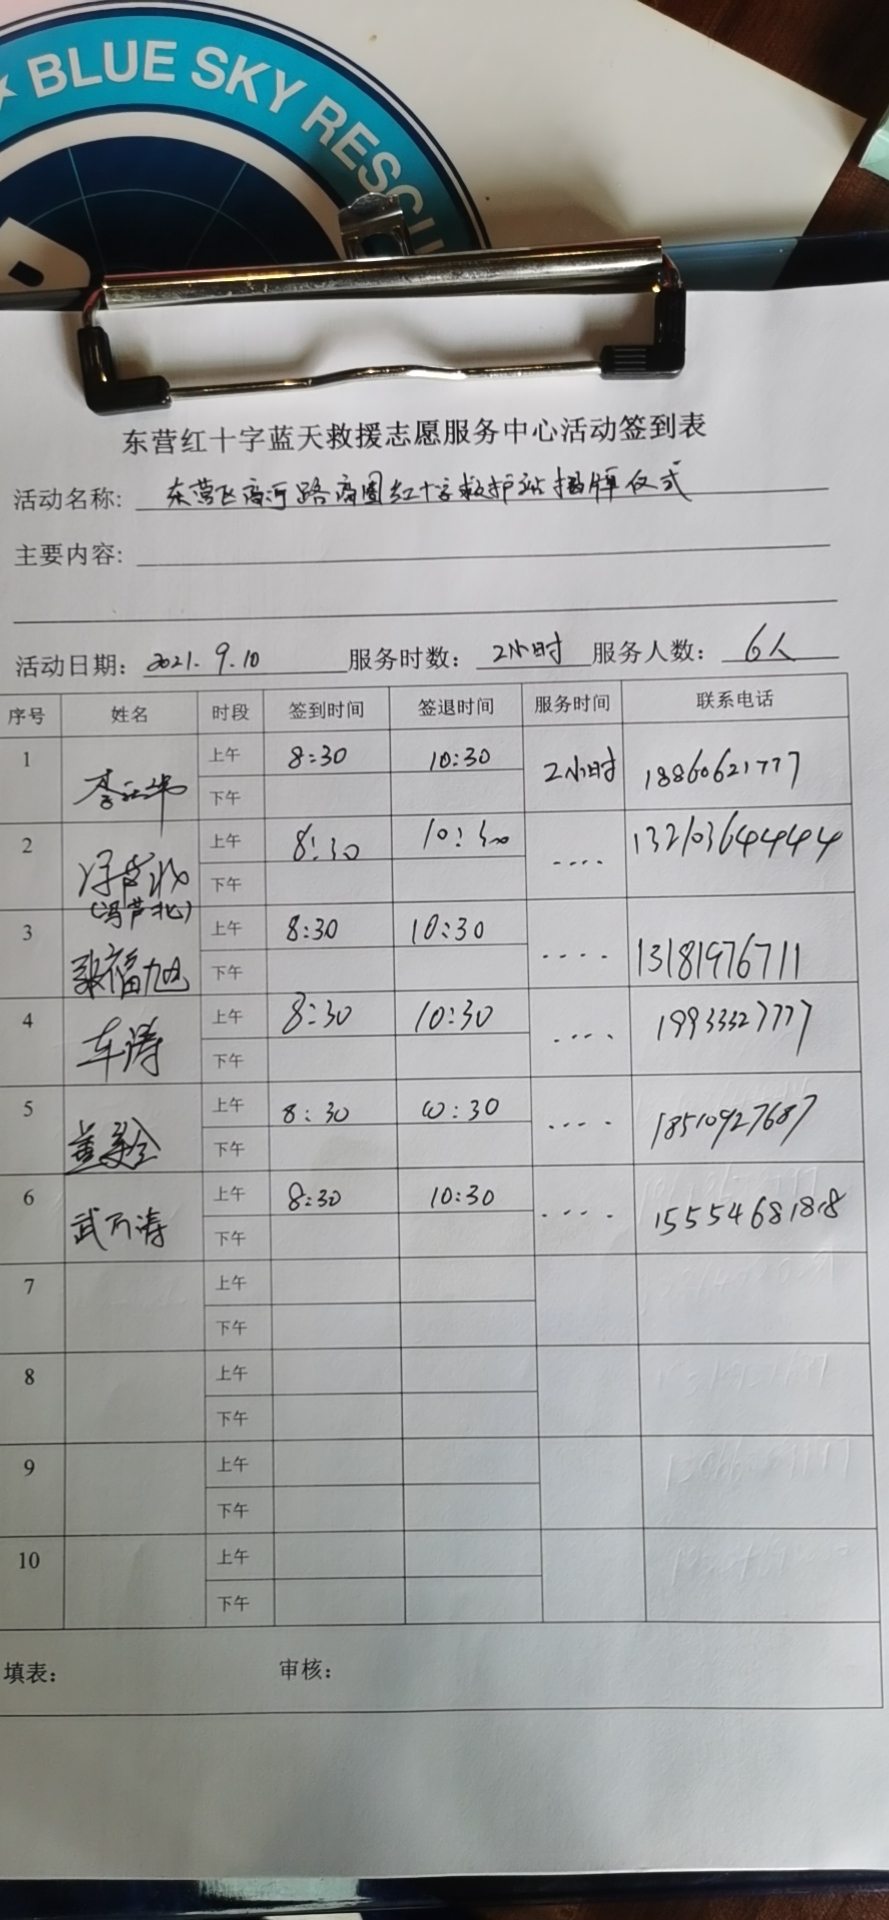 BLUE SKY RESCU
东营红十字蓝天救援志愿服务中心活动签到表
活动名称: 东营区商河路商圈红十字救护站揭牌仪式
主要内容:
活动日期: 2021.9.10 服务时数: 2小时 服务人数: 6人
序号 姓名 时段 签到时间 签退时间 服务时间 联系电话
1 上午 8:30 10:30 2小时 18860621777
下午
2 上午 8:30 10:30 .... 13210364444
(冯芦北)
下午
3 福旭 上午 8:30 10:30 .... 13181976711
下午
4 车涛 上午 8:30 10:30 .... 19933327777
下午
5 上午 8:30 10:30 .... 18510927687
下午
6 武万涛 上午 8:30 10:30 .... 15554681818
下午
7 上午
下午
8 上午
下午
9 上午
下午
10 上午
下午
填表: 审核: